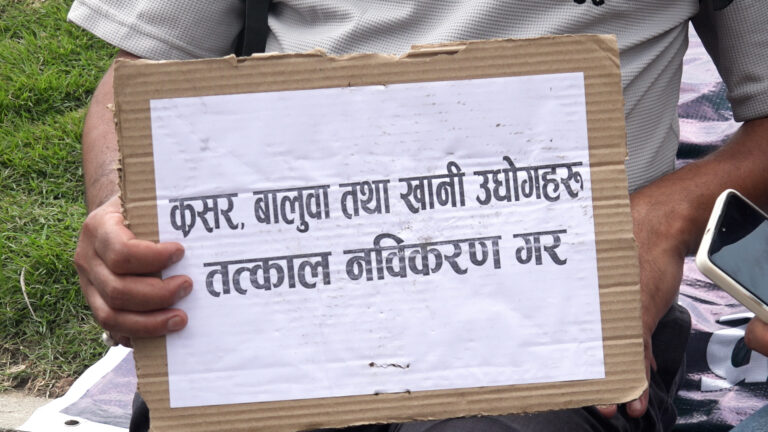 क्रसर, बालुवा तथा खानी उधोगहरू
तत्काल नविकरण गर